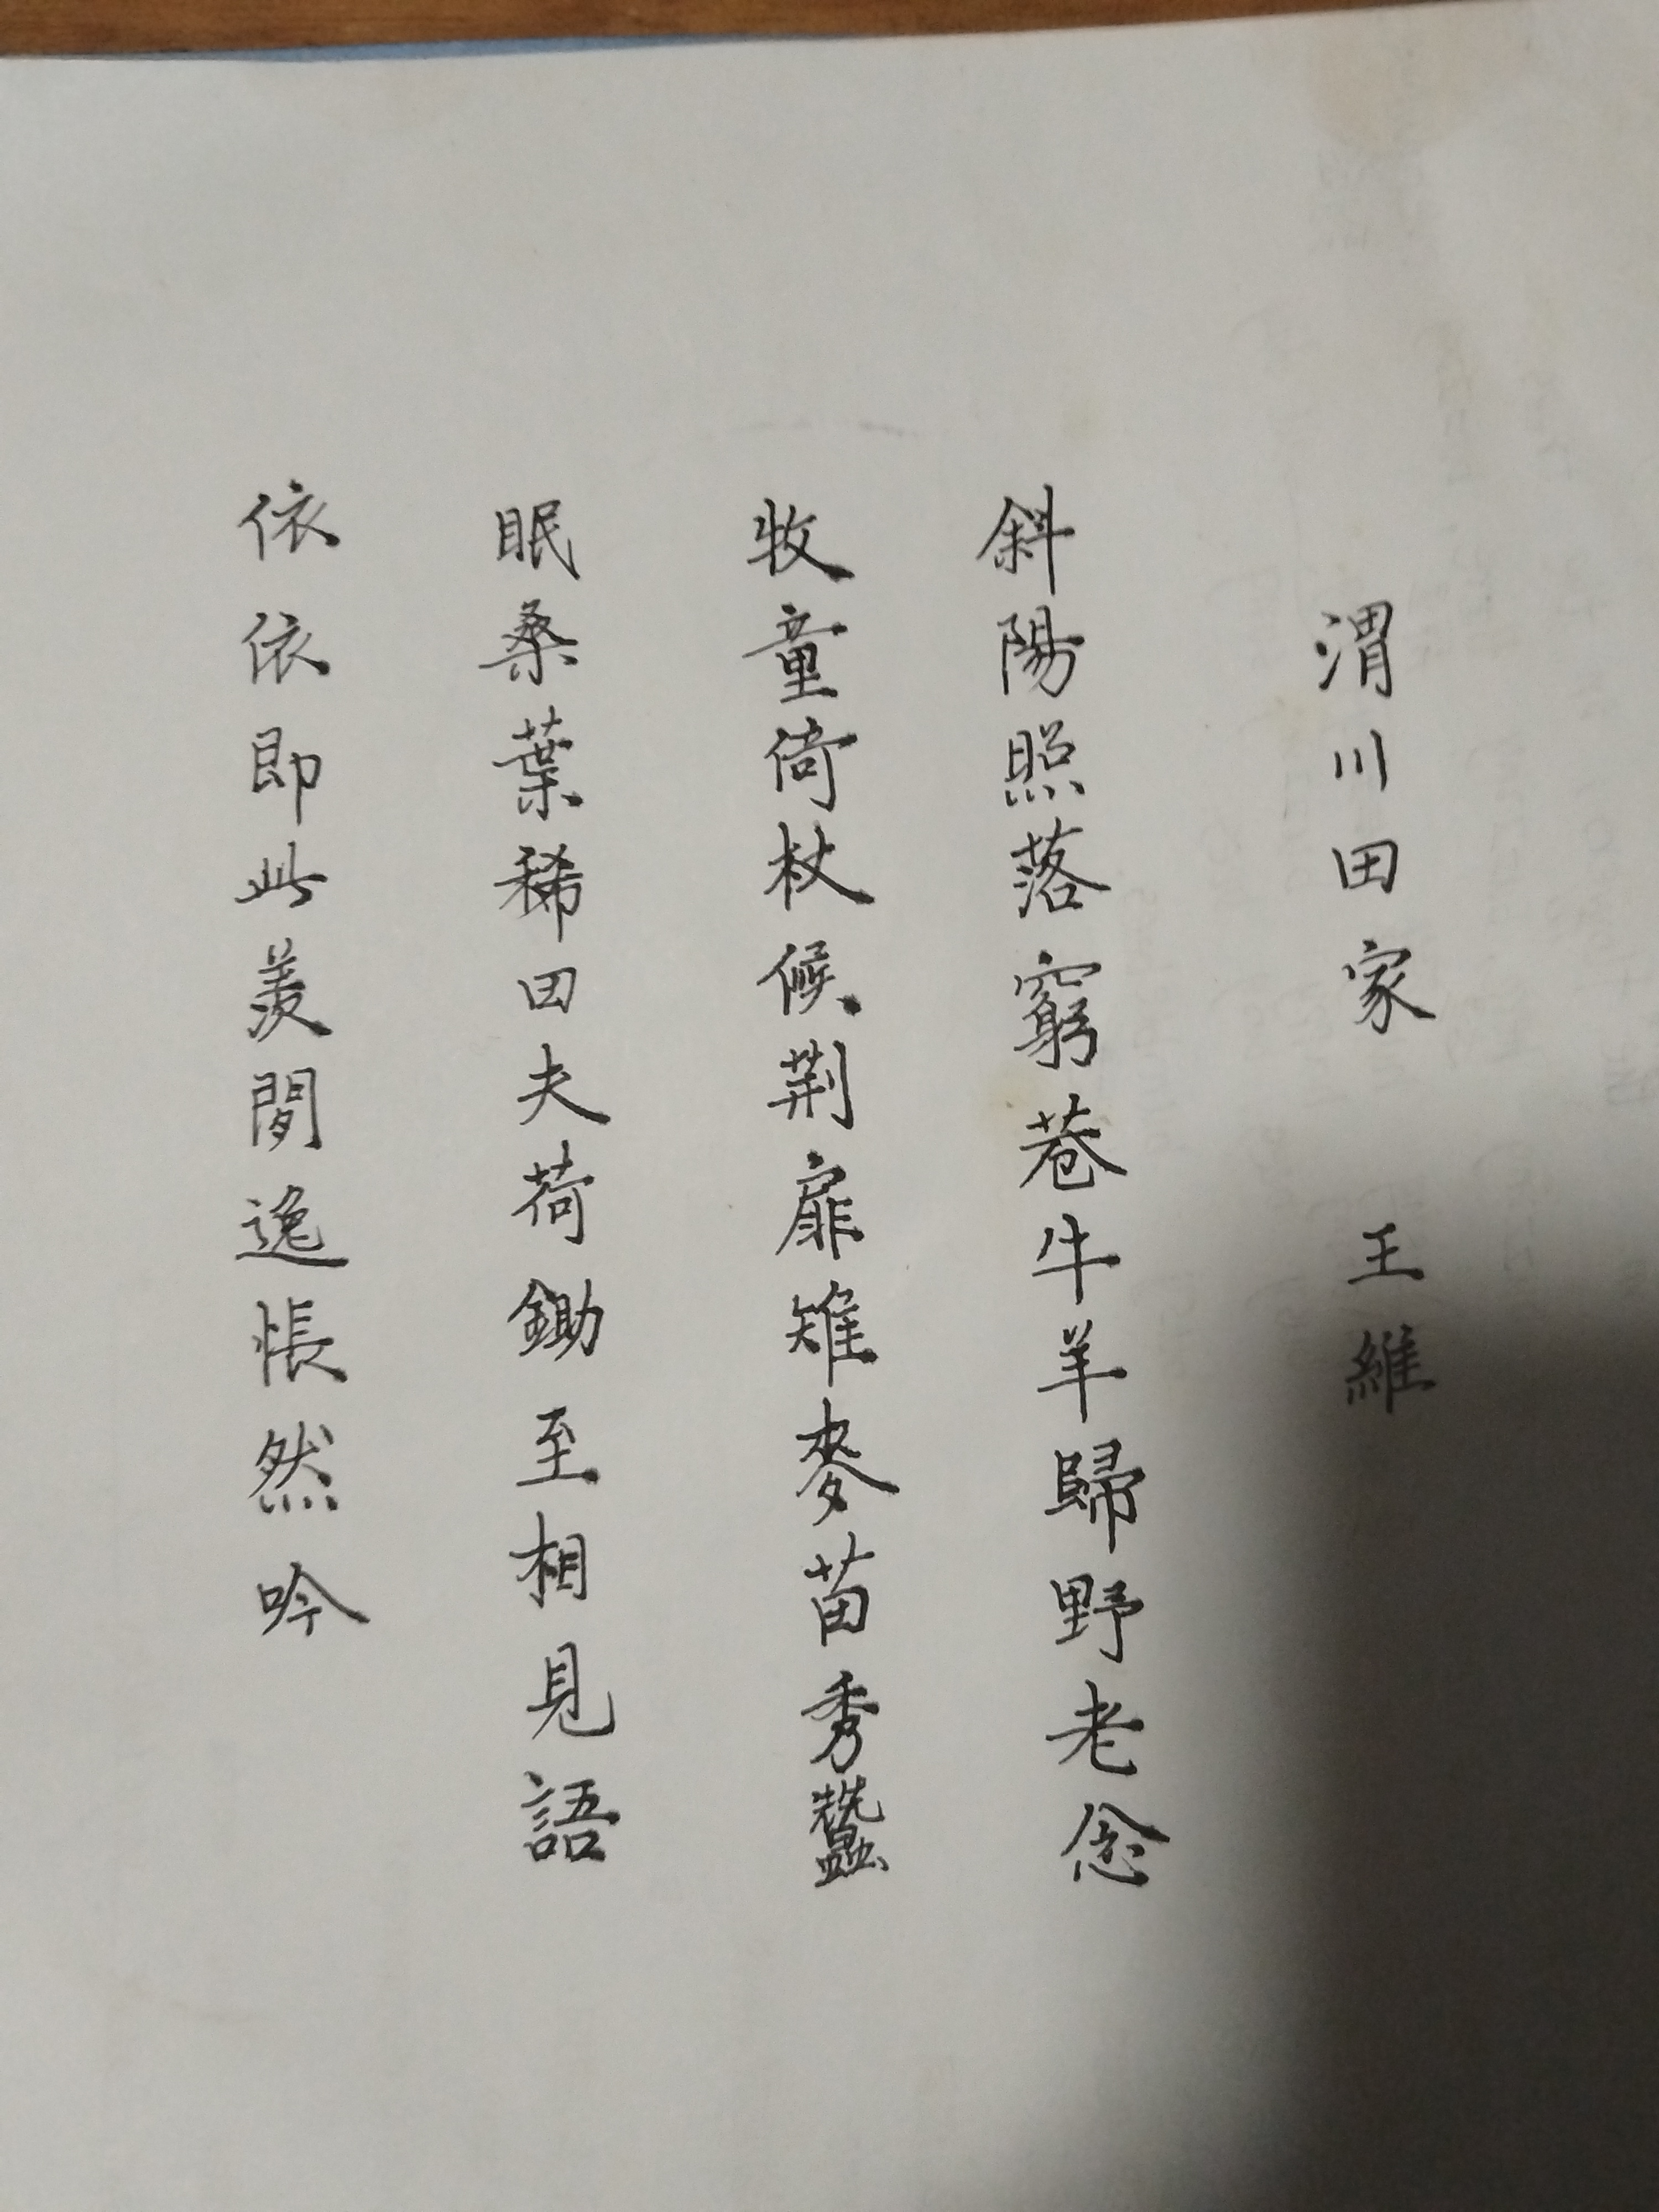 渭川田家 王維
斜陽照落窮巷牛羊歸野老念
牧童倚杖候荆扉雉麥苗秀蠶
眠桑葉稀田夫荷鋤至相見語
依依即此羨閒逸悵然吟